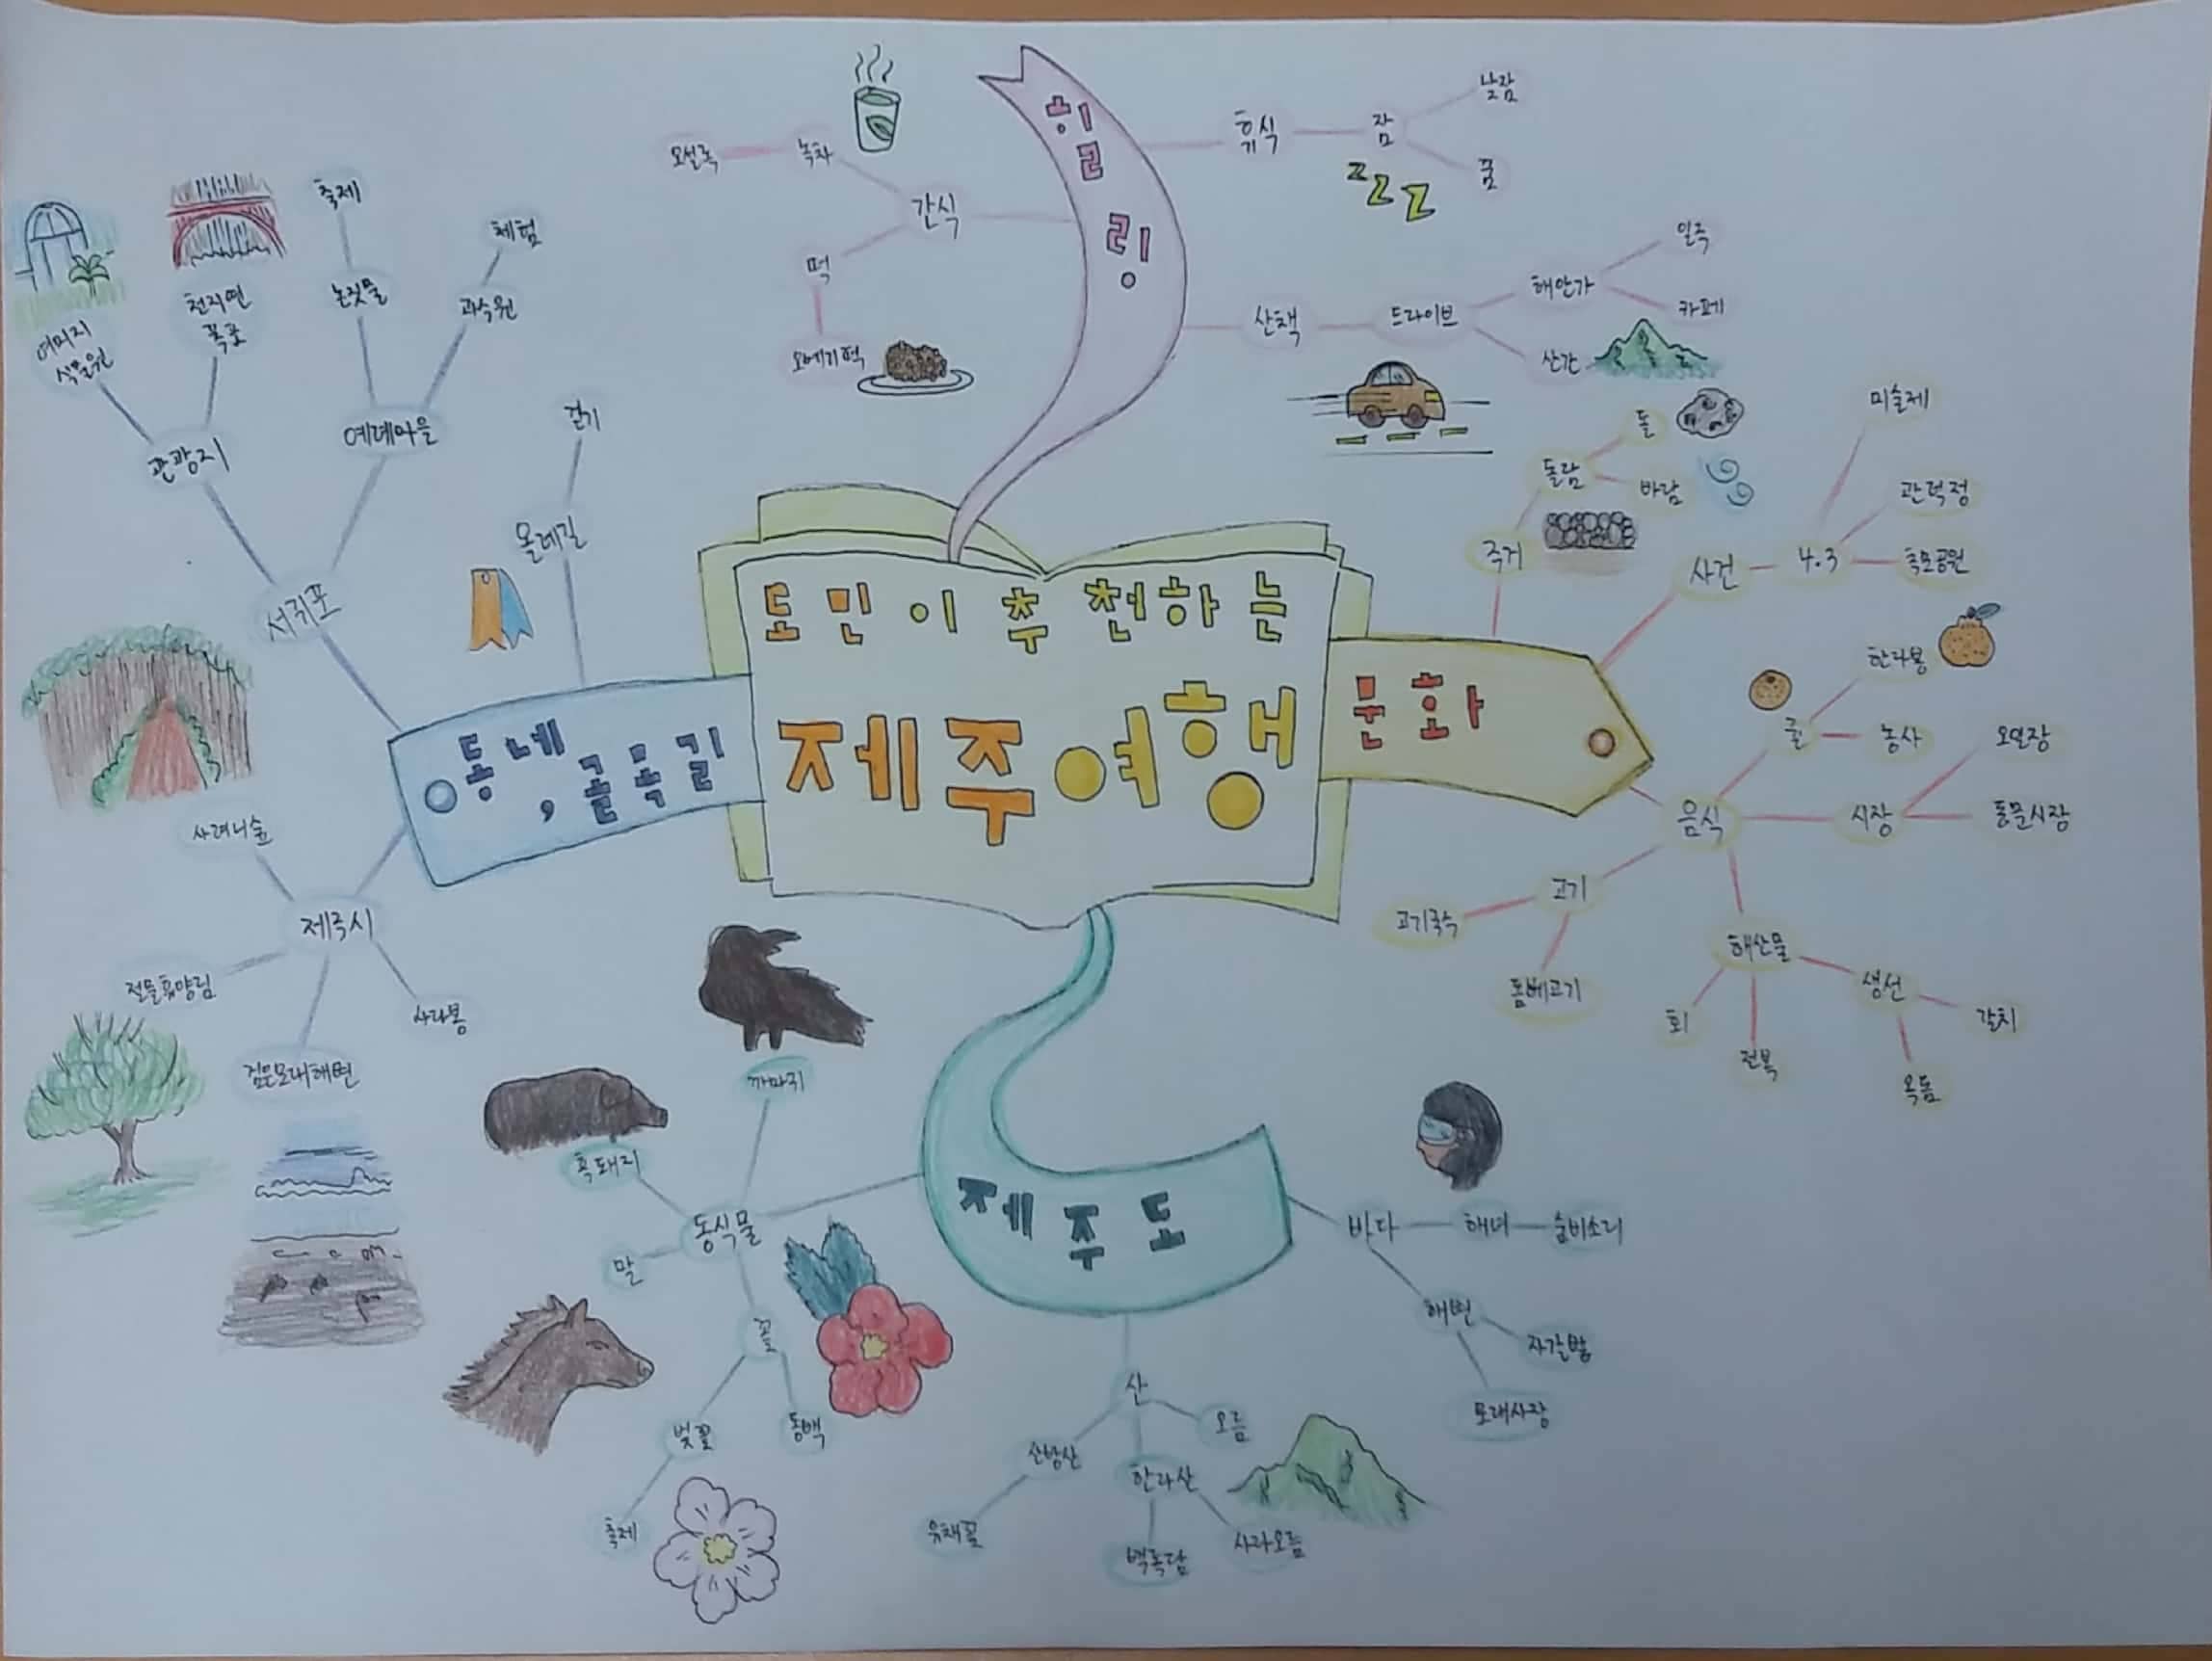 도민이 추천하는
제주여행
힐링
휴식
잠
낮잠
꿈
산책
드라이브
해안가
일주
카페
산간
간식
녹차
오설록
떡
오메기떡
문화
주거
돌담
돌
바람
사건
4.3
미술제
관덕정
추모공원
음식
귤
한라봉
농사
시장
오일장
동문시장
고기
고기국수
돔베고기
해산물
회
전복
생선
갈치
옥돔
제주도
바다
해녀
숨비소리
해변
자갈밭
모래사장
산
오름
한라산
백록담
사라오름
산방산
유채꽃
동식물
까마귀
흑돼지
말
꽃
벚꽃
축제
동백
동네, 골목길
올레길
걷기
서귀포
관광지
여미지
식물원
천지연
폭포
예래마을
논짓물
축제
과수원
체험
제주시
사려니숲
절물휴양림
검은모래해변
사라봉